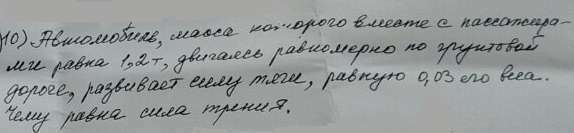 10) Автомобиль, масса которого вместе с пассажира-
ми равна 1,2т, двигаясь равномерно по грунтовой
дороге, развивает силу тяги, равную 0,03 его веса.
Чему равна сила трения.